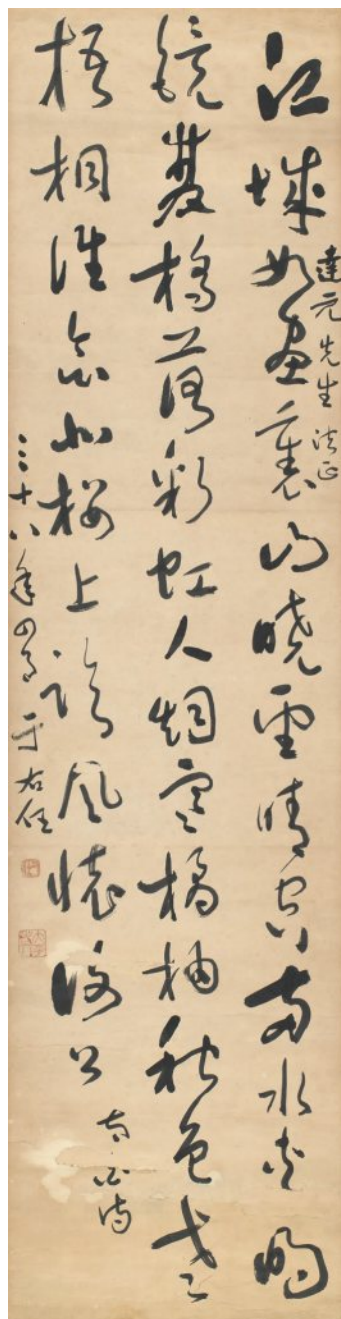 達元先生法正
江城如畫裏山曉望晴空兩水夾明
鏡雙橋落彩虹人烟寒橘柚秋色老
梧桐誰念北樓上臨風懷謝公
李白詩
三十八年四月于右任